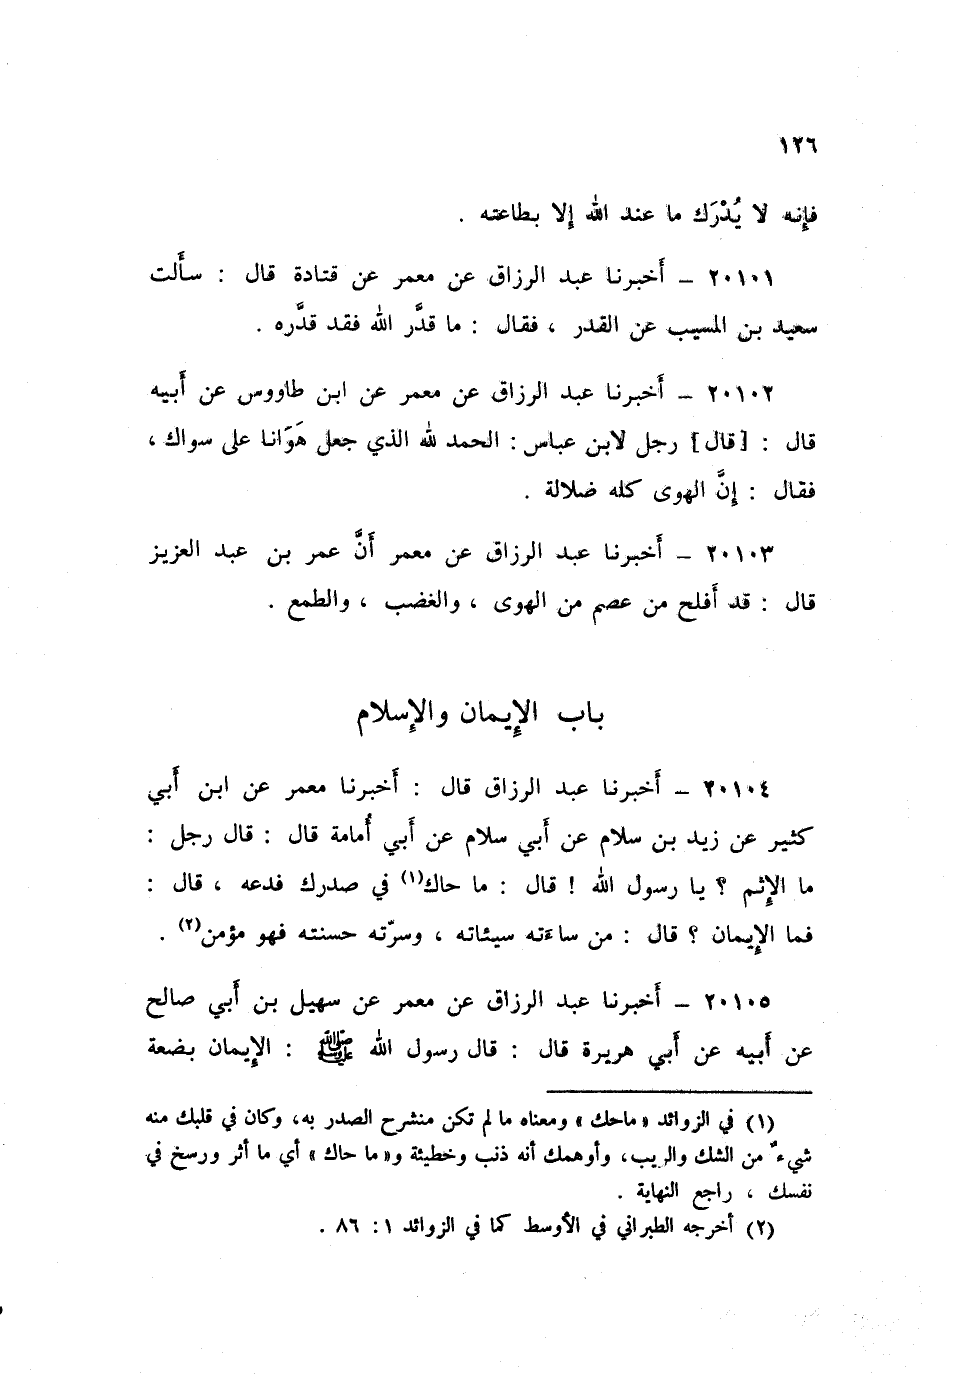 ١٢٦
فإنه لا يُدْرَك ما عند الله إلا بطاعته .
٢٠١٠١ – أَخبرنا عبد الرزاق عن معمر عن قتادة قال : سأَلت
سعيد بن المسيب عن القدر ، فقال : ما قدَّر الله فقد قدَّره .
٢٠١٠٢ – أَخبرنا عبد الرزاق عن معمر عن ابن طاووس عن أَبيه
قال : [قال] رجل لابن عباس : الحمد لله الذي جعل هَوَانا على سواك ،
فقال : إنَّ الهوى كله ضلالة .
٢٠١٠٣ – أَخبرنا عبد الرزاق عن معمر أَنَّ عمر بن عبد العزيز
قال : قد أَفلح من عصم من الهوى ، والغضب ، والطمع .
باب الإيمان والإسلام
٢٠١٠٤ – أَخبرنا عبد الرزاق قال : أَخبرنا معمر عن ابن أَبي
كثير عن زيد بن سلام عن أَبي سلام عن أَبي أُمامة قال : قال رجل :
ما الإثم ؟ يا رسول الله ! قال : ما حاك(١) في صدرك فدعه ، قال :
فما الإيمان ؟ قال : من ساءَته سيئاته ، وسرّته حسنته فهو مؤمن(٢) .
٢٠١٠٥ – أَخبرنا عبد الرزاق عن معمر عن سهيل بن أَبي صالح
عن أَبيه عن أَبي هريرة قال : قال رسول الله ﷺ : الإيمان بضعة
(١) في الزوائد «ماحك» ومعناه ما لم تكن منشرح الصدر به، وكان في قلبك منه
شيءٌ من الشك والريب، وأوهمك أنه ذنب وخطيئة و«ما حاك» أي ما أثر ورسخ في
نفسك ، راجع النهاية .
(٢) أخرجه الطبراني في الأوسط كما في الزوائد ١ : ٨٦ .